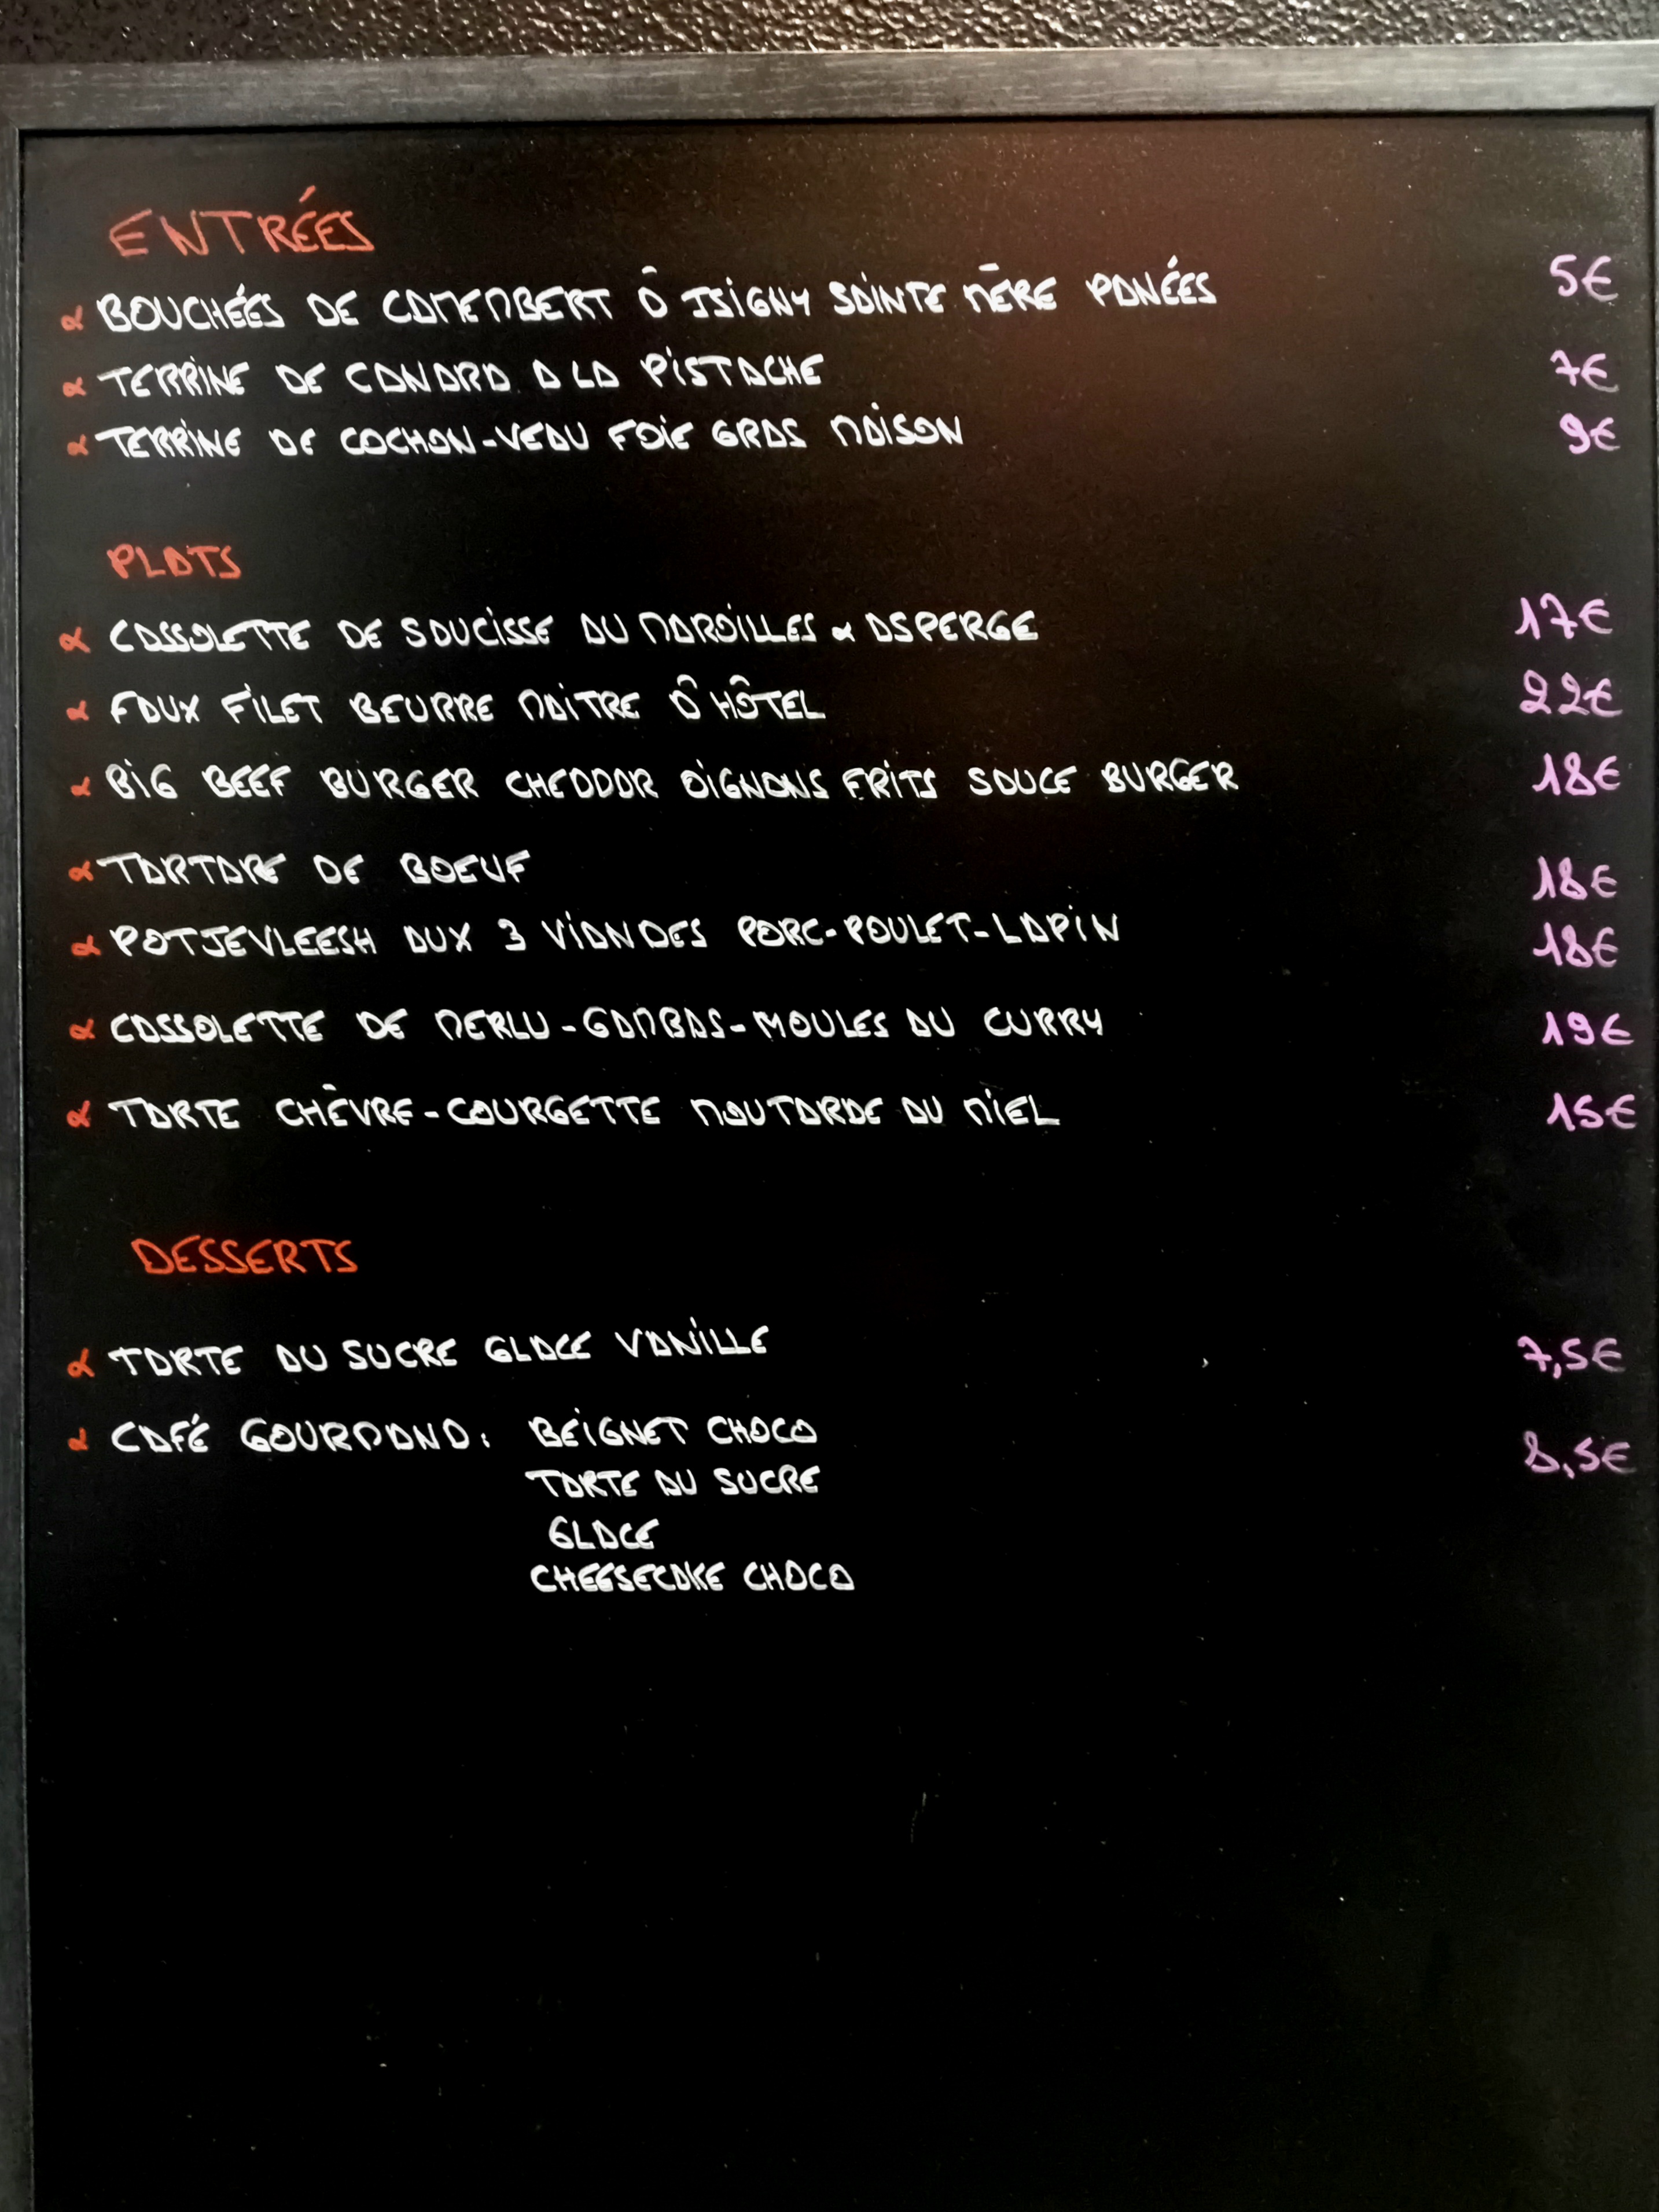 ENTRÉES
BOUCHÉES DE CAMEMBERT D ISIGNY SAINTE MÈRE PANÉES 5€
TERRINE DE CANARD A LA PISTACHE 7€
TERRINE DE COCHON-VEAU FOIE GRAS MAISON 9€
PLATS
CASSOLETTE DE SAUCISSE AU MAROILLES & ASPERGE 17€
FAUX FILET BEURRE MAITRE D HÔTEL 22€
BIG BEEF BURGER CHEDDAR OIGNONS FRITS SAUCE BURGER 18€
TARTARE DE BOEUF 18€
POTJEVLEESH AUX 3 VIANDES PORC-POULET-LAPIN 18€
CASSOLETTE DE MERLU-GAMBAS-MOULES AU CURRY 19€
TARTE CHÈVRE-COURGETTE MOUTARDE AU MIEL 15€
DESSERTS
TARTE AU SUCRE GLACE VANILLE 7,5€
CAFÉ GOURMAND: BEIGNET CHOCO 8,5€
TARTE AU SUCRE
GLACE
CHEESECAKE CHOCO